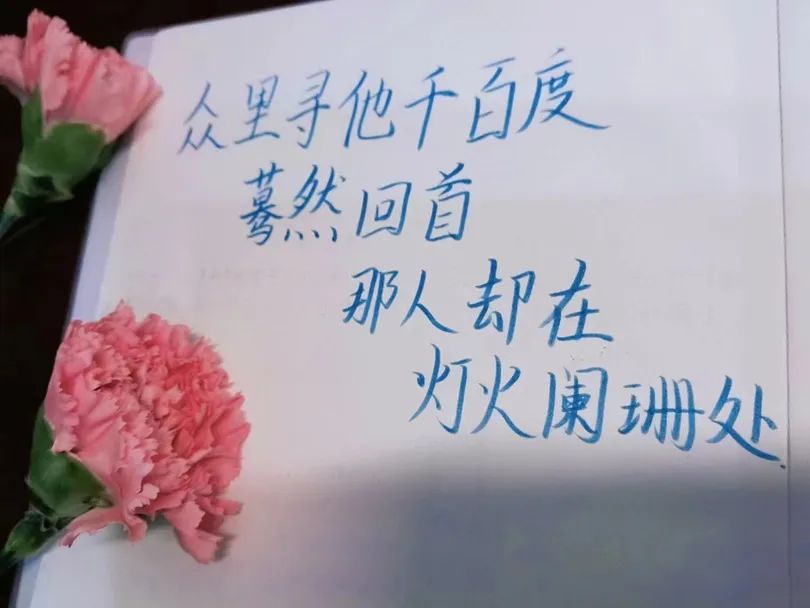 众里寻他千百度
蓦然回首
那人却在
灯火阑珊处